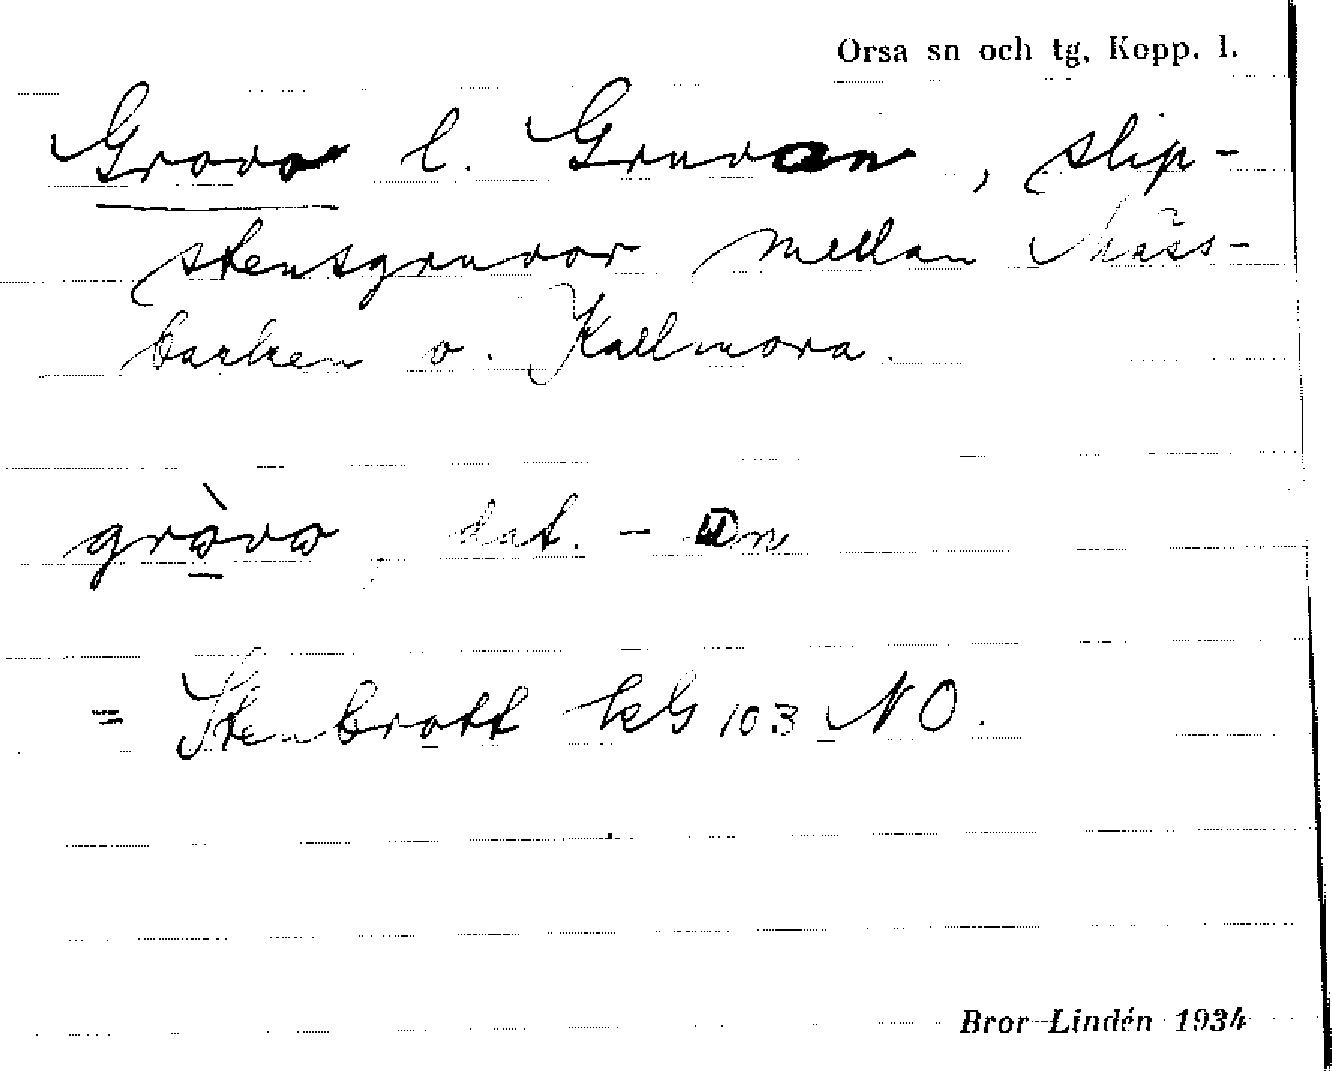 Orsa sn och tg, Kopp. l.
Grova l. Gruvan, slip-
stensgruvor mellan Mäss-
backen o. Kallmora.
gròvo, dat. - n
= Stenbrott kG 103 NO.
Bror Lindén 1934